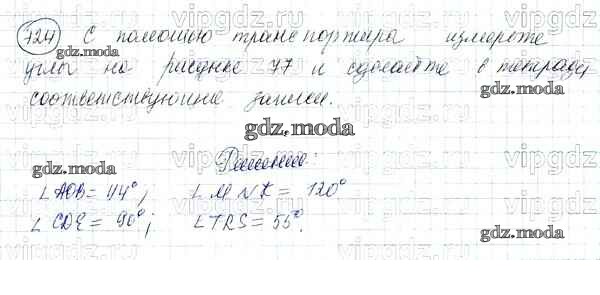 724 С помощью транспортира измерьте
углы на рисунке 77 и сделайте в тетради
соответствующие записи.
Решение:
∠AOB = 44°; ∠MNK = 120°
∠CDE = 90°; ∠TRS = 55°.
gdz.moda
gdz.moda
gdz.moda
gdz.moda
gdz.moda
gdz.moda
gdz.moda
vipgdz.vip